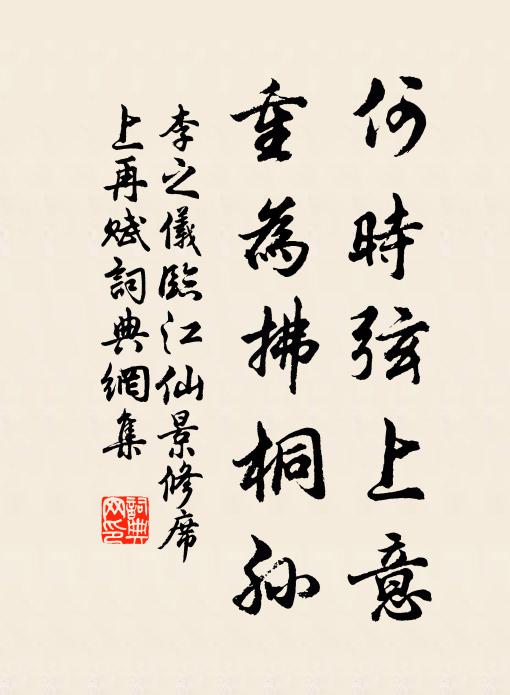 何時弦上意
重為拂桐孫
李之儀臨江仙景修席
上再賦詞典網集
詞典網印